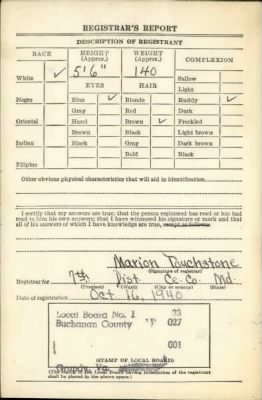 REGISTRAR'S REPORT
DESCRIPTION OF REGISTRANT
RACE HEIGHT (Approx.) WEIGHT (Approx.) COMPLEXION
White ✓ 5'6" 140 Sallow
EYES HAIR Light
Negro Blue ✓ Blonde Ruddy ✓
Gray Red Dark
Oriental Hazel Brown ✓ Freckled
Brown Black Light brown
Indian Black Gray Dark brown
Bald Black
Filipino
Other obvious physical characteristics that will aid in identification
I certify that my answers are true; that the person registered has read or has had
read to him his own answers; that I have witnessed his signature or mark and that
all of his answers of which I have knowledge are true, except as follows:
Marion Touchstone
(Signature of registrar)
Registrar for 7th Dist. Ce. Co. Md.
(Precinct) (Ward) (City or county) (State)
Date of registration Oct 16, 1940
Local Board No. 1 23
Buchanan County 027
001
(STAMP OF LOCAL BOARD)
shall be placed in the above space.)